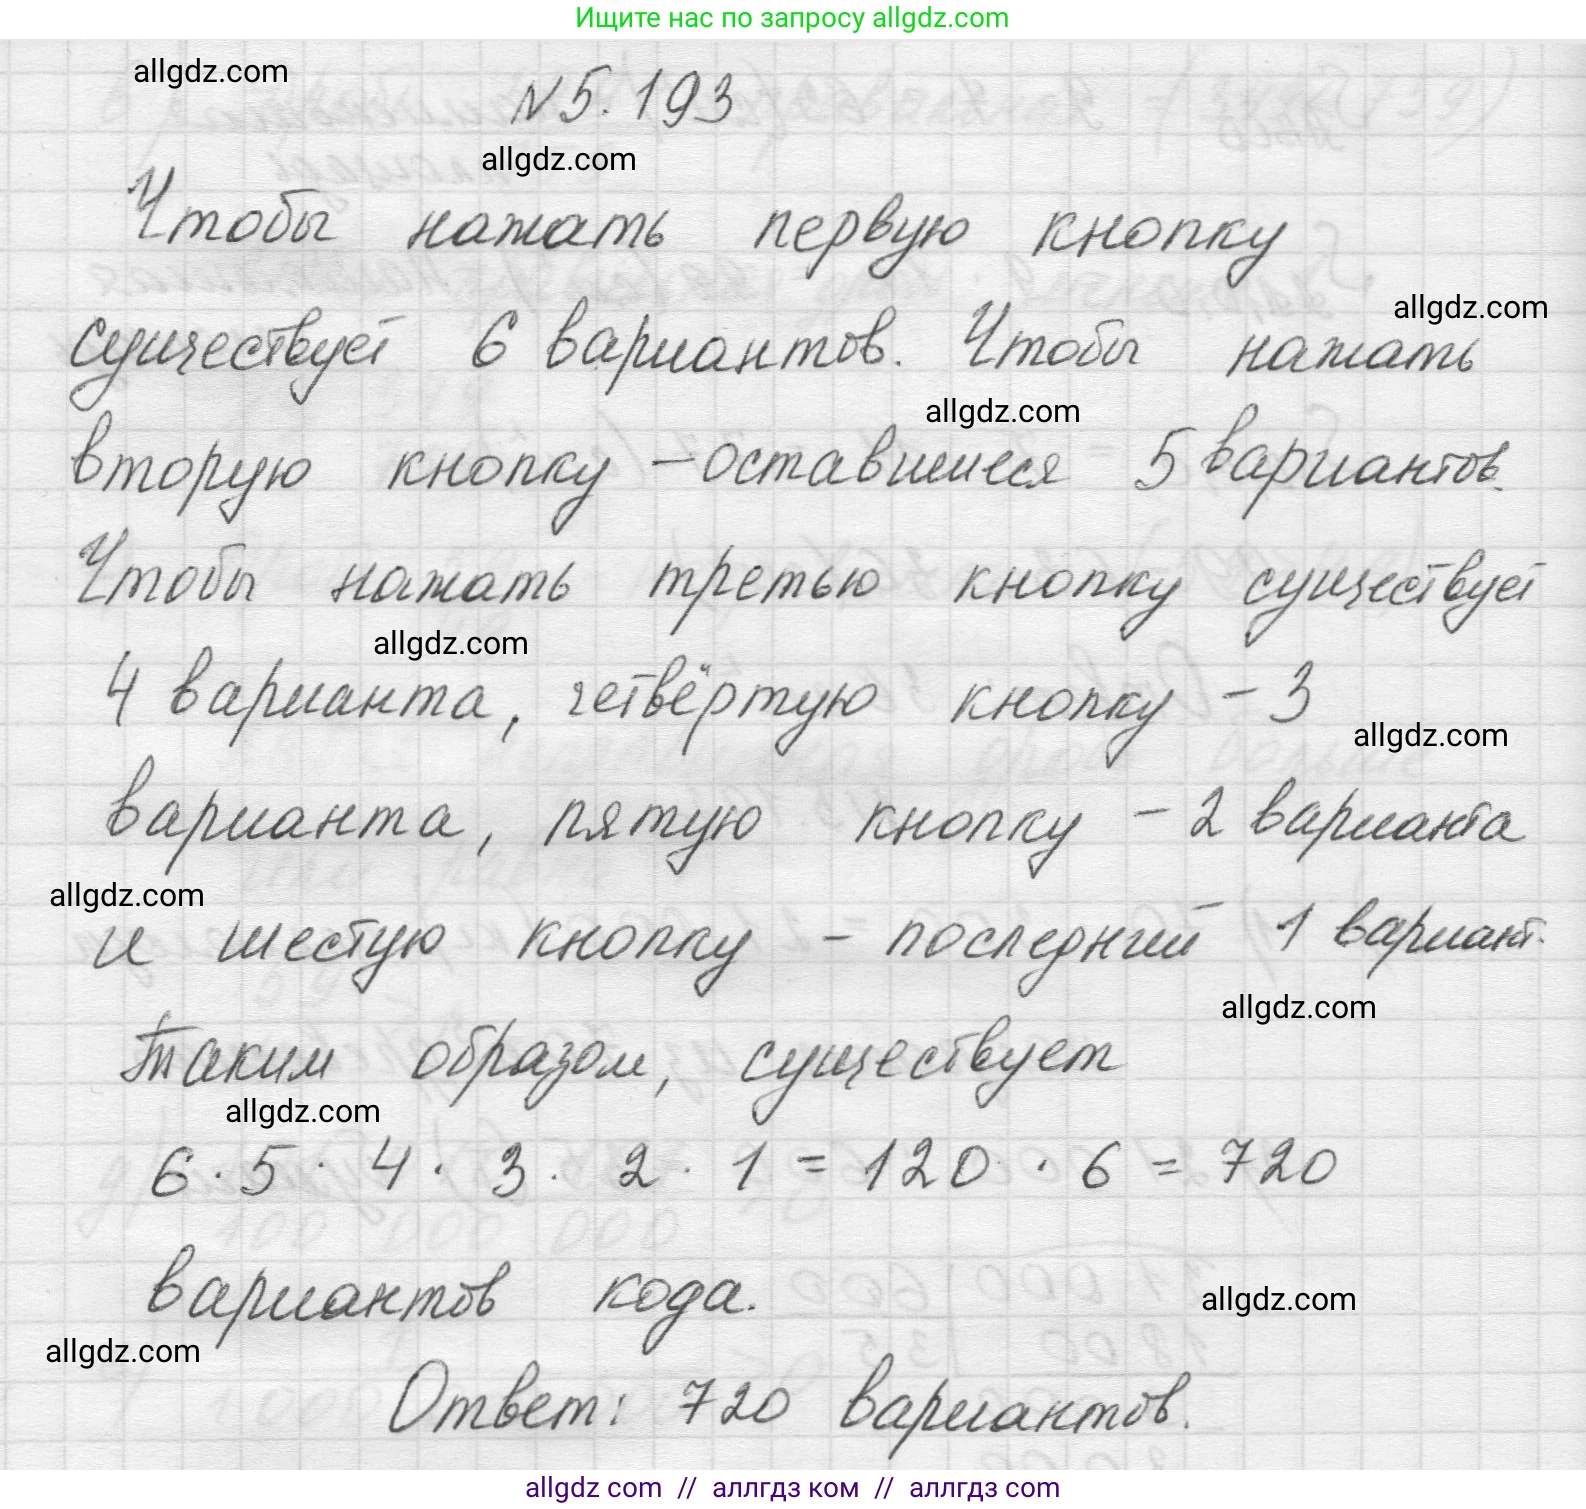 Ищите нас по запросу allgdz.com
allgdz.com
N 5.193
allgdz.com
Чтобы нажать первую кнопку
allgdz.com
существует 6 вариантов. Чтобы нажать
allgdz.com
вторую кнопку – оставшиеся 5 вариантов.
Чтобы нажать третью кнопку существует
allgdz.com
4 варианта, четвёртую кнопку – 3
allgdz.com
варианта, пятую кнопку – 2 варианта
allgdz.com
и шестую кнопку – последний 1 вариант.
allgdz.com
Таким образом, существует
allgdz.com
6 · 5 · 4 · 3 · 2 · 1 = 120 · 6 = 720
вариантов кода.
allgdz.com
allgdz.com
Ответ: 720 вариантов.
allgdz com // аллгдз ком // аллгдз com